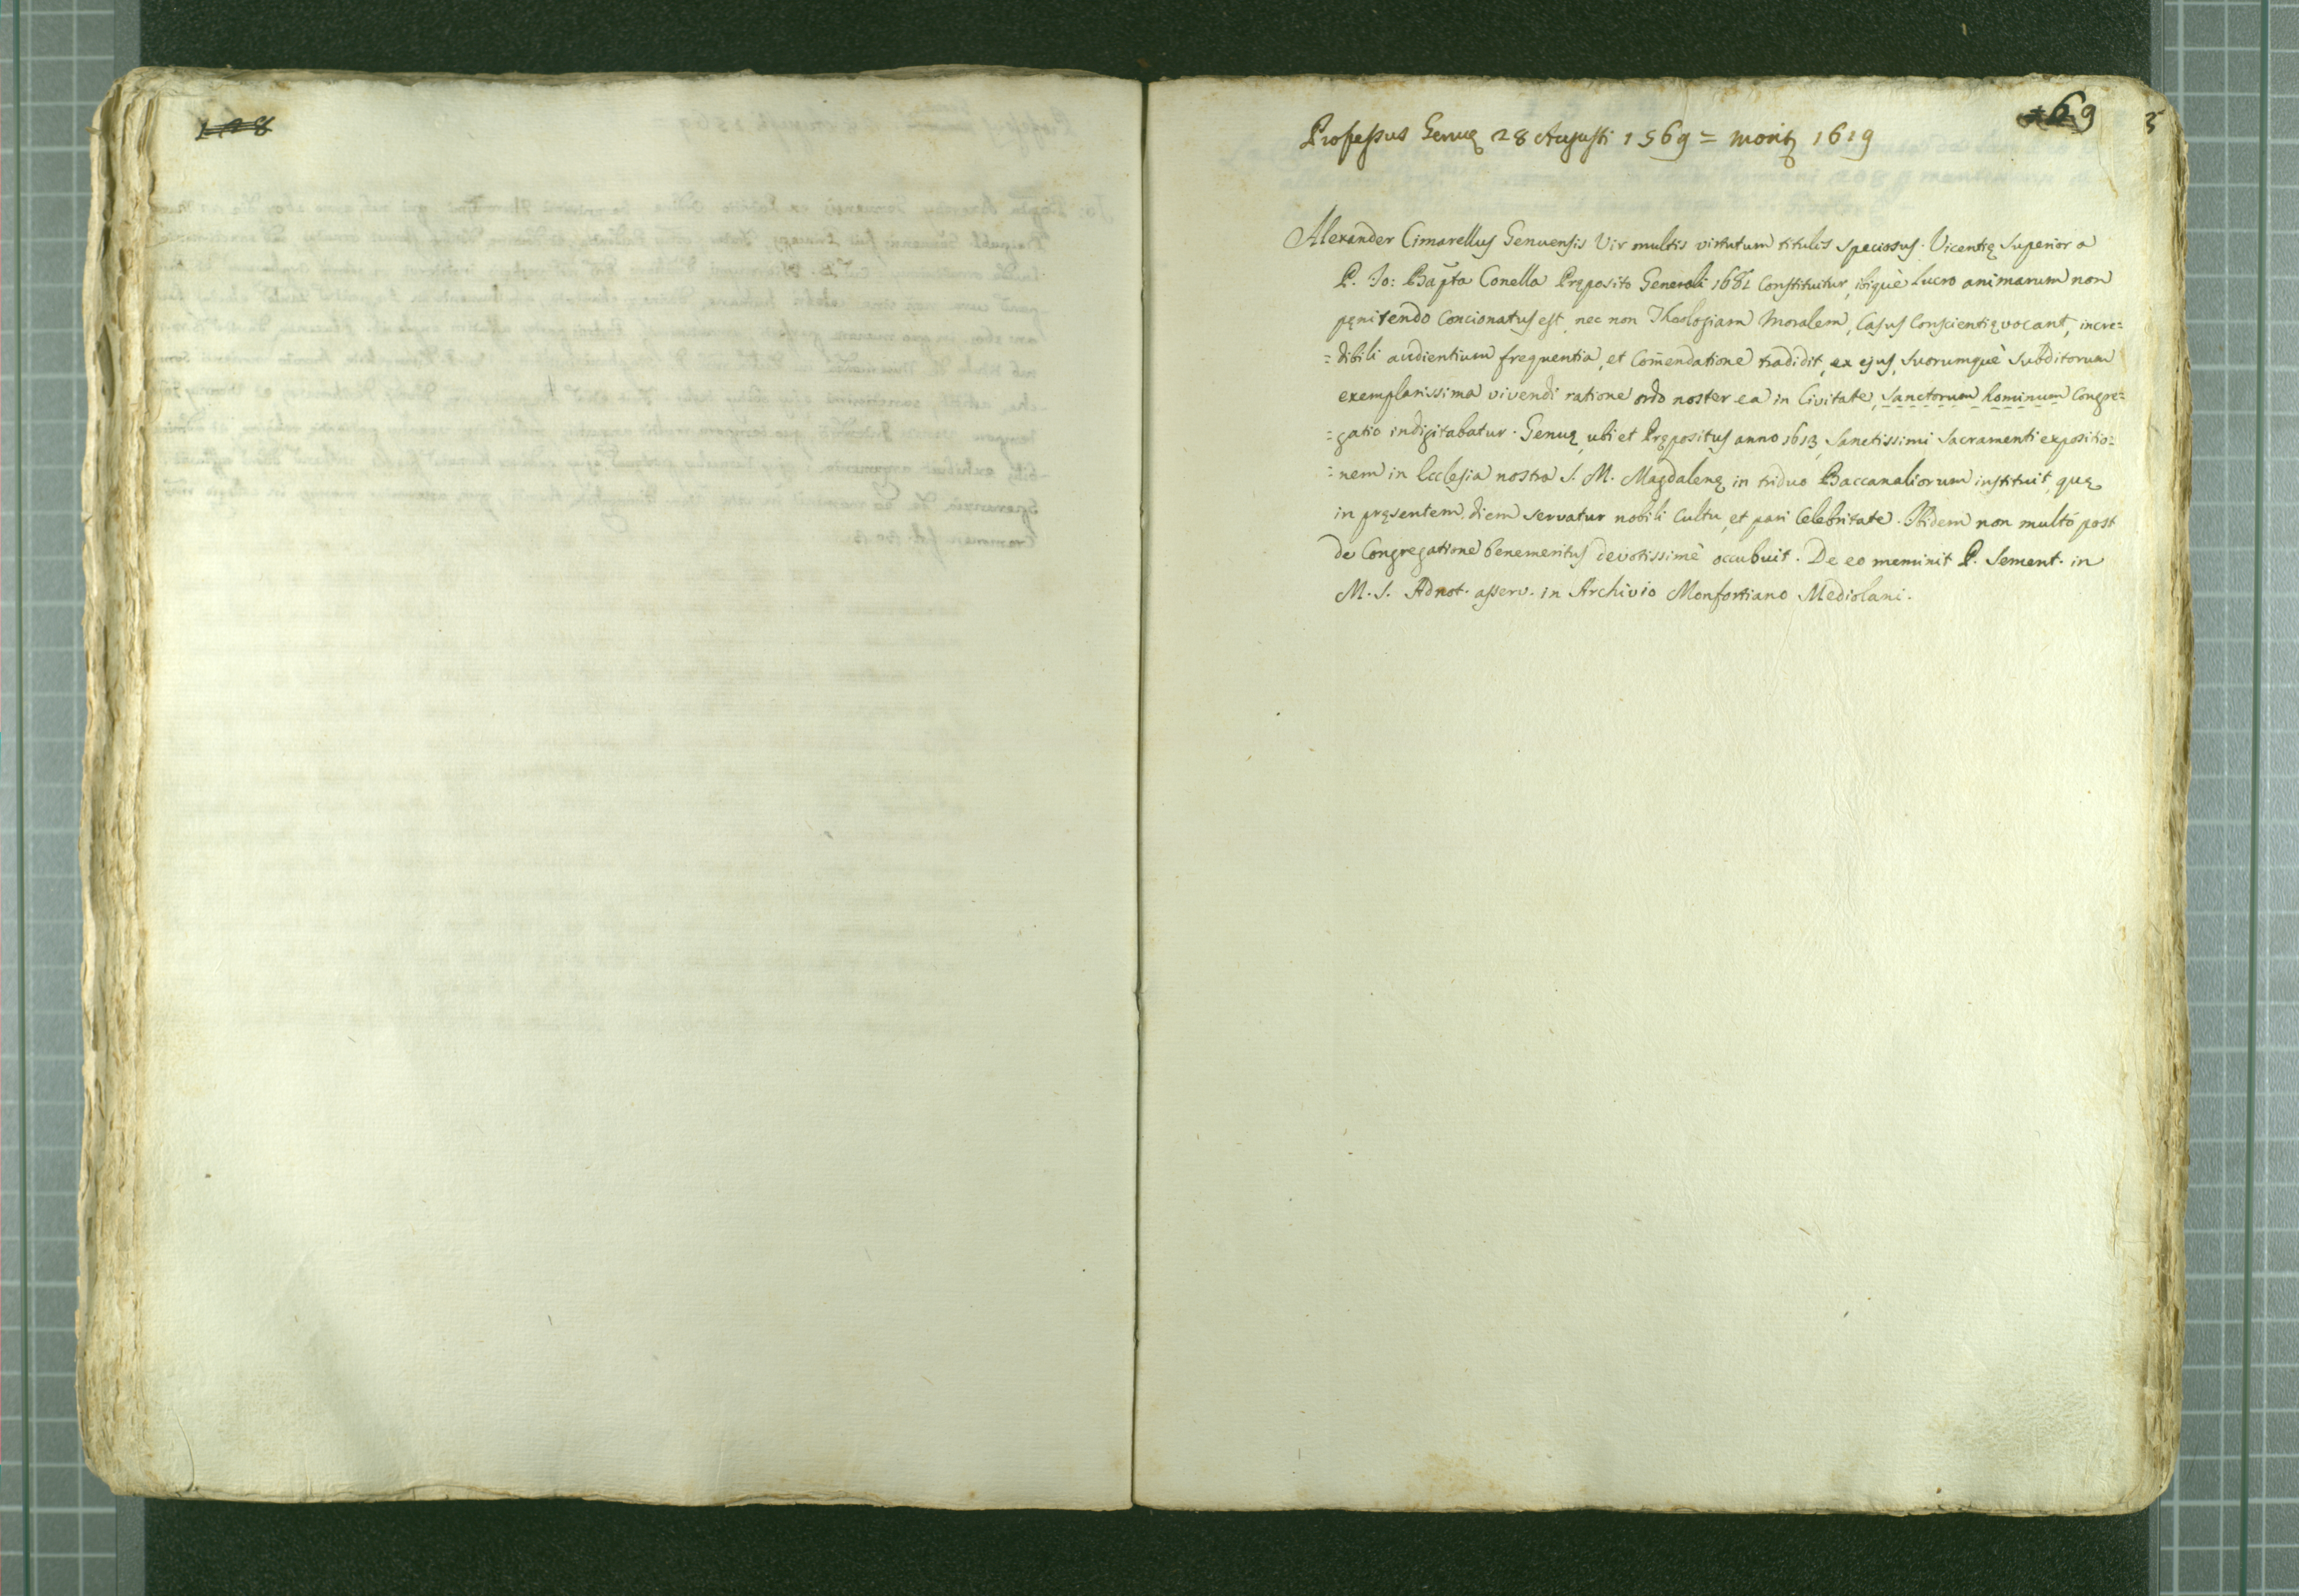 128
69
Professus Genuę 28 Augusti 1569 = moritz 1619
Alexander Cimarellus Genuensis Vir multis virtutum titulis speciosus. Vicentię Superior a
P. Jo: Bapta Conella Pręposito Generali constituitur, ibiquè lucro animarum non
pęnitendo concionatus est, nec non Theologiam Moralem, Casus Conscientię vocant, incre=
=dibili audientium frequentia, et Com̄endatione tradidit, ex ejus, suorumquè subditorum
exemplarissima vivendi ratione ordo noster ea in Civitate, Sanctorum hominum Congre=
=gatio indigitabatur. Genuę, ubi et Prępositus anno 1613, Sanctissimi Sacramenti expositio=
=nem in Ecclesia nostra S. M. Magdalenę in triduo Baccanaliorum instituit, quę
in pręsentem diem servatur nobili cultu, et pari celebritate. Ibidem non multò post
de Congregatione benemeritus devotissimè occubuit. De eo meminit P. Sement. in
M. S. Adnot. asserv. in Archivio Monfortiano Mediolani.